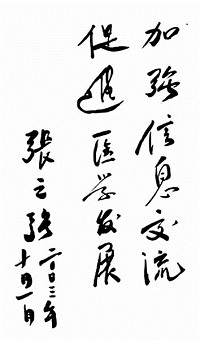 加强信息交流
促进医学发展
張之强
二〇〇三年
十月一日